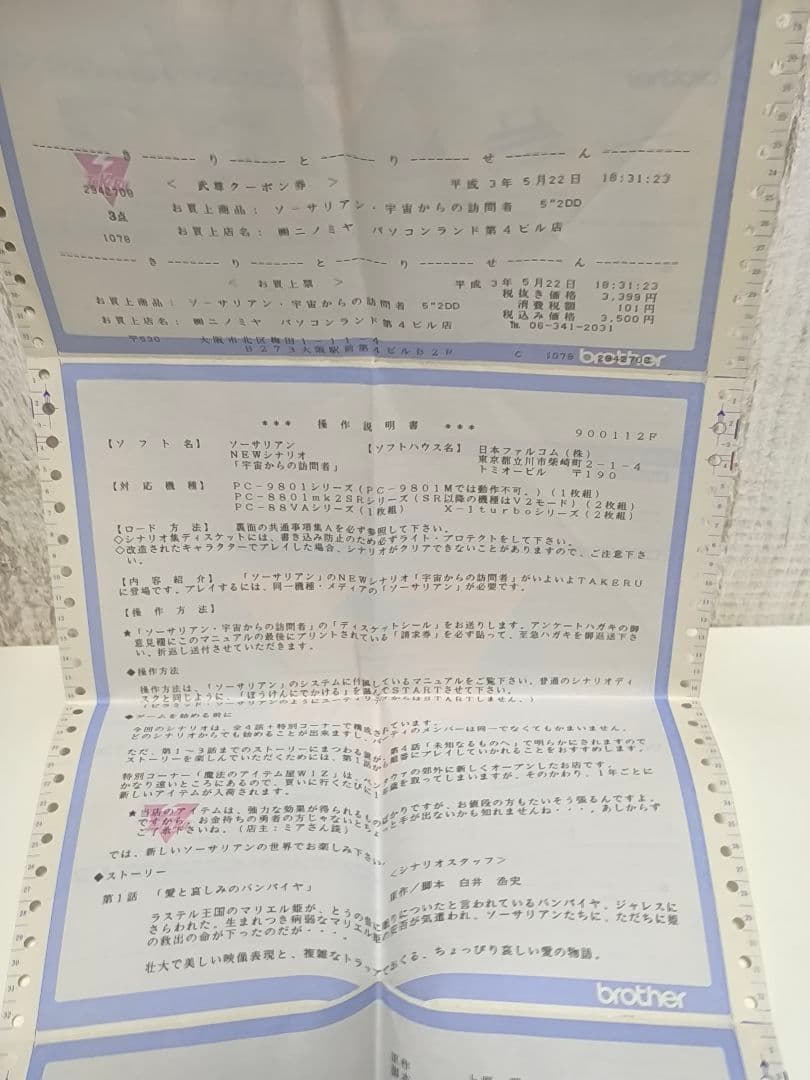 き り と り せ ん
2942708 < 武尊クーポン券 > 平成 3年 5月22日 18:31:23
3点 お買上商品: ソーサリアン・宇宙からの訪問者 5"2DD
1078 お買上店名: ㈱ニノミヤ パソコンランド第4ビル店
き り と り せ ん
< お買上票 > 平成 3年 5月22日 18:31:23
お買上商品: ソーサリアン・宇宙からの訪問者 5"2DD 税抜き価格 3,399円
消費税額 101円
お買上店名: ㈱ニノミヤ パソコンランド第4ビル店 税込み価格 3,500円
℡ 06-341-2031
〒530 大阪市北区梅田1-11-4
B273大阪駅前第4ビルB2F C 1078 2942708
brother
*** 操作説明書 *** 900112F
【ソフト名】 ソーサリアン 【ソフトハウス名】 日本ファルコム(株)
NEWシナリオ 東京都立川市柴崎町2-1-4
「宇宙からの訪問者」 トミオービル 〒190
【対応機種】 PC-9801シリーズ(PC-9801Mでは動作不可。)(1枚組)
PC-8801mk2SRシリーズ(SR以降の機種はV2モード)(2枚組)
PC-88VAシリーズ(1枚組) X-1turboシリーズ(2枚組)
【ロード方法】 裏面の共通事項集Aを必ず参照して下さい。
◇シナリオ集ディスケットには、書き込み防止のため必ずライト・プロテクトをして下さい。
◇改造されたキャラクターでプレイした場合、シナリオがクリアできないことがありますので、ご注意下さ
い。
【内容紹介】 「ソーサリアン」のNEWシナリオ「宇宙からの訪問者」がいよいよTAKERU
に登場です。プレイするには、同一機種・メディアの「ソーサリアン」が必要です。
【操作方法】
★「ソーサリアン・宇宙からの訪問者」の「ディスケットシール」をお送りします。アンケートハガキの御
意見欄にこのマニュアルの最後にプリントされている「請求券」を必ず貼って、至急ハガキを御返送下さ
い。折返し送付させていただきます。
◆操作方法
操作方法は、「ソーサリアン」のシステムに付属しているマニュアルをご覧下さい。普通のシナリオディ
スクと同じように、「ぼうけんにでかける」を選んでSTARTさせて下さい。
(ピラミッド・ソーサリアンのようにユーティリティからはSTARTしません。)
◆ゲームを始める前に
今回のシナリオは、全4話+特別コーナーで構成されています。
どのシナリオからでも始めることが出来ますし、パーティのメンバーは同一でなくてもかまいません。
ただ、第1~3話までのストーリーにまつわる謎が、第4話「未知なるものへ」で明らかにされますので
ストーリーを楽しんでいただくためには、第1話から順番にプレイしていかれることをおすすめします。
特別コーナー「魔法のアイテム屋WIZ」は、ペンタウァの郊外に新しくオープンしたお店です。
かなり遠いところにあるので、買いに行くたびに1年歳を取ってしまいますが、そのかわり、1年ごとに
新しいアイテムが入荷されます。
★当店のアイテムは、強力な効果が得られるものばかりですが、お値段の方もたいそう張るんですよ。
ですから、お金持ちの勇者の方じゃないとちょっと手が出ないかも知れませんね・・・。あしからず
ご了承下さいね。(店主:ミアさん談)
では、新しいソーサリアンの世界でお楽しみ下さい
◆ストーリー <シナリオスタッフ>
第1話 「愛と哀しみのバンパイヤ」 原作/脚本 白井 忞史
ラステル王国のマリエル姫が、とうの昔に眠りについたと言われているバンパイヤ、ジャレスに
さらわれた。生まれつき病弱なマリエル姫の安否が気遣われ、ソーサリアンたちに、ただちに姫
の救出の命が下ったのだが・・・。
壮大で美しい映像表現と、複雑なトラップでおくる、ちょっぴり哀しい愛の物語。
brother
原作